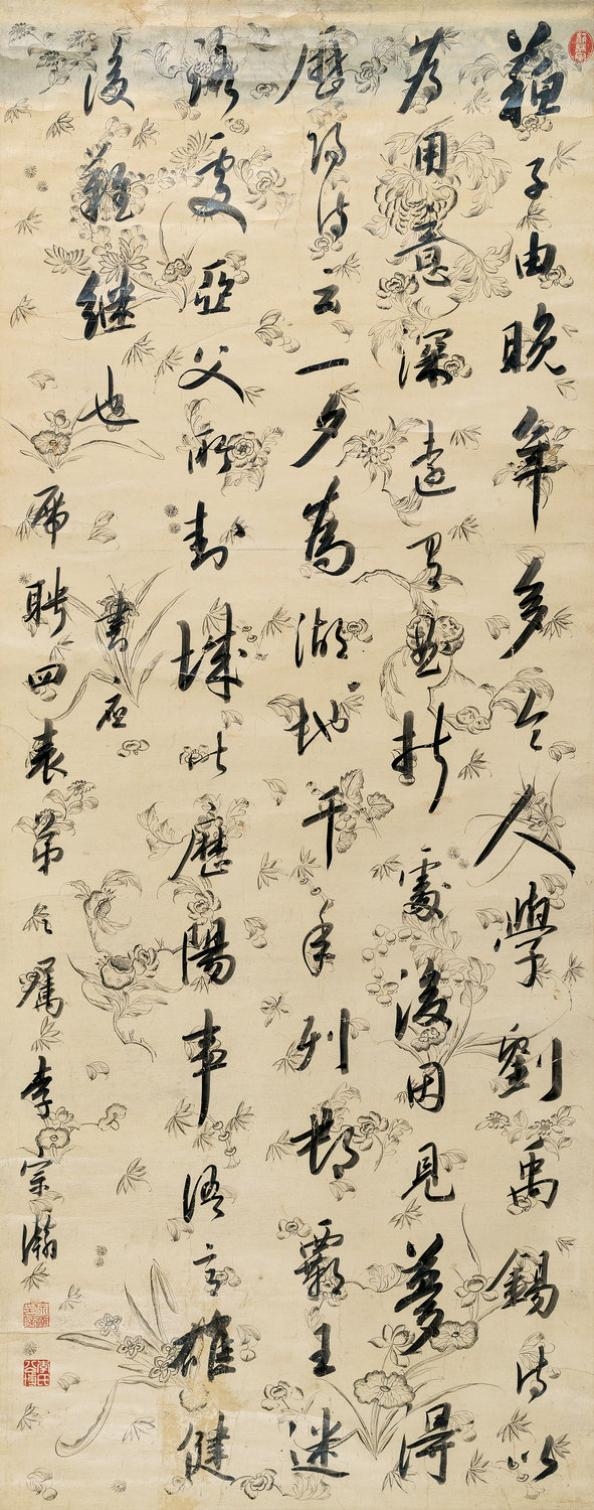 蘇子由晚年多令人學劉禹錫詩以
為用意深遠有曲折處後因見夢得
歷陽詩云一夕為湖地千年列郡霸王迷
路處亞父所封城此歷陽事語言雄健
後難繼也
書應
席聘四表弟屬李宗瀚
李氏公博